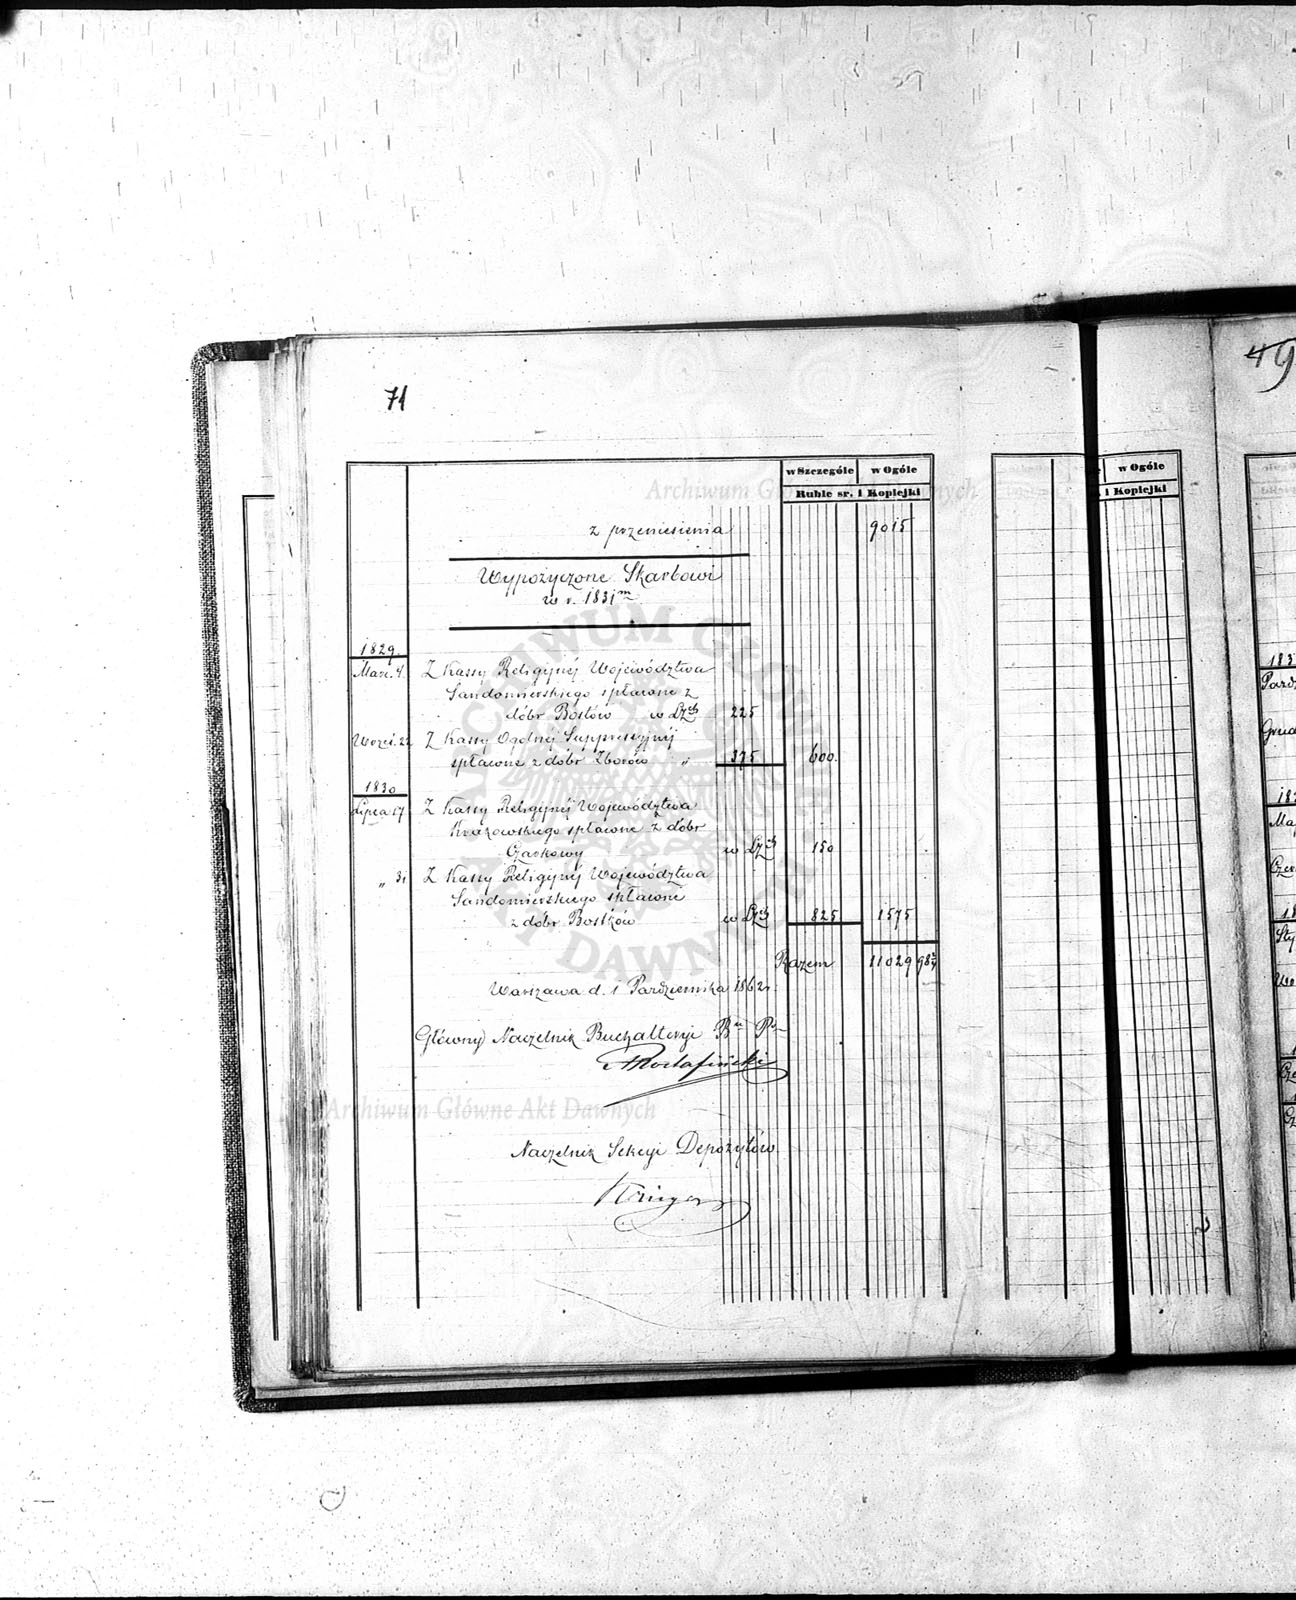 71
49
w Szczególe w Ogóle
Ruble sr. i Kopiejki
z przeniesienia 9015
Wypożyczone Skarbowi
w r. 1831m
1829.
Marc. 4. Z Kassy Religijnéj Województwa
Sandomierskiego spłacone z
dóbr Bostów w Lzch 225
Wrześ. 22 Z Kassy Ogólnéj Suppressyjnéj
spłacone z dóbr Zborów " 375 600.
1830
Lipca 17 Z Kassy Religijnéj Województwa
Krakowskiego spłacone z dóbr
Czarkowy w Lzch 150
" 31 Z Kassy Religijnéj Województwa
Sandomierskiego spłacone
z dóbr Bostków w Lzch 825 1575
Razem 11029 98
Warszawa d. 1 Października 1862 r.
Główny Naczelnik Buchalteryi Bu Po
Rostafiński
Naczelnik Sekcyi Depozytów
w Ogóle
i Kopiejki
Archiwum Główne Akt Dawnych
ARCHIWUM GŁÓWNE AKT DAWNYCH
Archiwum Główne Akt Dawnych